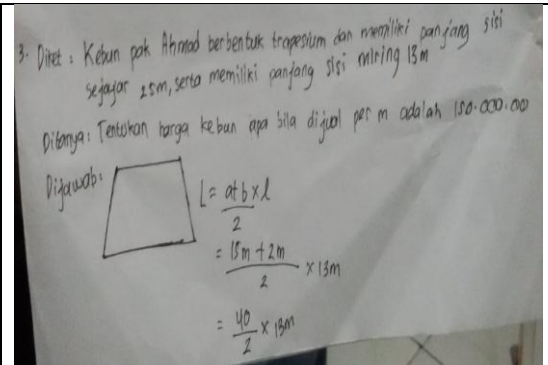 3. Diket : Kebun pak Ahmad berbentuk trapesium dan memiliki panjang sisi
sejajar 25m, serta memiliki panjang sisi miring 13m
Ditanya : Tentukan harga kebun apa bila dijual per m adalah 150.000.000
Dijawab :
L = a+b x l
2
= 15m + 2m
2
x 13m
= 40
2
x 13m